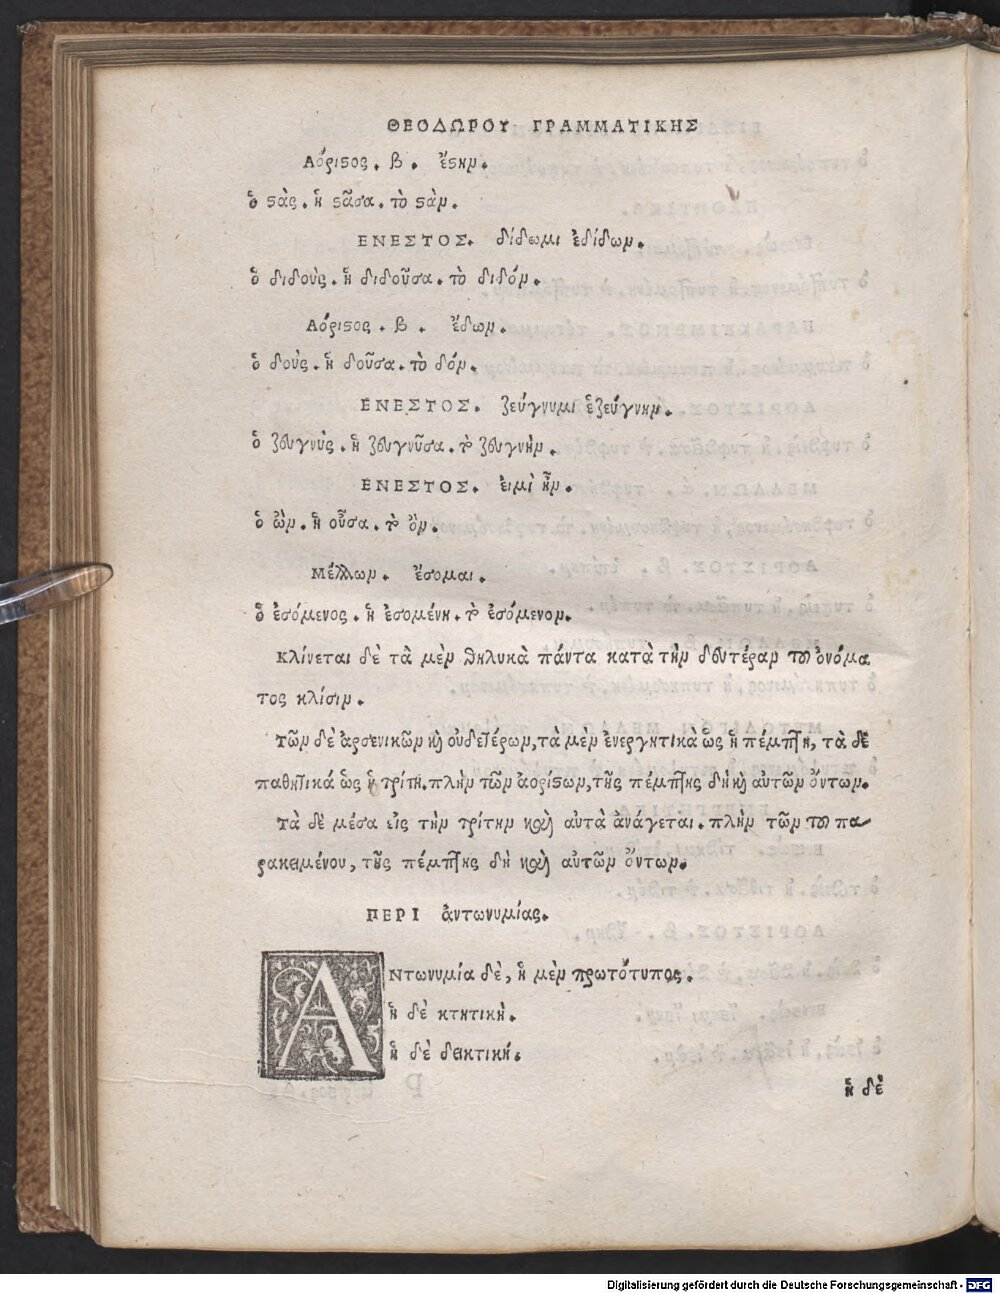 ΘΕΟΔΩΡΟΥ ΓΡΑΜΜΑΤΙΚΗΣ
Αόριϛος. β. ἔϛην.
ὁ ϛὰς. ἡ ϛᾶσα. τὸ ϛὰν.
ΕΝΕΣΤΟΣ. δίδωμι ἐδίδων.
ὁ διδοὺς. ἡ διδοῦσα. τὸ διδόν.
Αόριϛος. β. ἔδων.
ὁ δοὺς. ἡ δοῦσα. τὸ δόν.
ΕΝΕΣΤΟΣ. ζεύγνυμι ἐζεύγνην.
ὁ ζευγνὺς. ἡ ζευγνῦσα. τὸ ζευγνὴν.
ΕΝΕΣΤΟΣ. εἰμὶ ἦν.
ὁ ὢν. ἡ οὖσα. τὸ ὂν.
Μέλλων. ἔσομαι.
ὁ ἐσόμενος. ἡ ἐσομένη. τὸ ἐσόμενον.
Κλίνεται δὲ τὰ μὲν θηλυκὰ πάντα κατὰ τὴν δευτέραν τοῦ ὀνόμα
τος κλίσιν.
Τῶν δὲ ἀρσενικῶν καὶ οὐδετέρων, τὰ μὲν ἐνεργητικὰ ὡς ἡ πέμπτη, τὰ δὲ
παθητικά ὡς ἡ τρίτη. πλὴν τῶν ἀορίϛων, τῆς πέμπτης δὴ καὶ αὐτῶν ὄντων.
Τὰ δὲ μέσα εἰς τὴν τρίτην καὶ αὐτὰ ἀνάγεται. πλὴν τῶν τοῦ πα
ρακειμένου, τῆς πέμπτης δὴ καὶ αὐτῶν ὄντων.
ΠΕΡΙ ἀντωνυμίας.
ΑΝΤωνυμία δὲ, ἡ μὲν πρωτότυπος.
ἡ δὲ κτητικὴ.
ἡ δὲ δεικτική.
ἡ δὲ
Digitalisierung gefördert durch die Deutsche Forschungsgemeinschaft - DFG